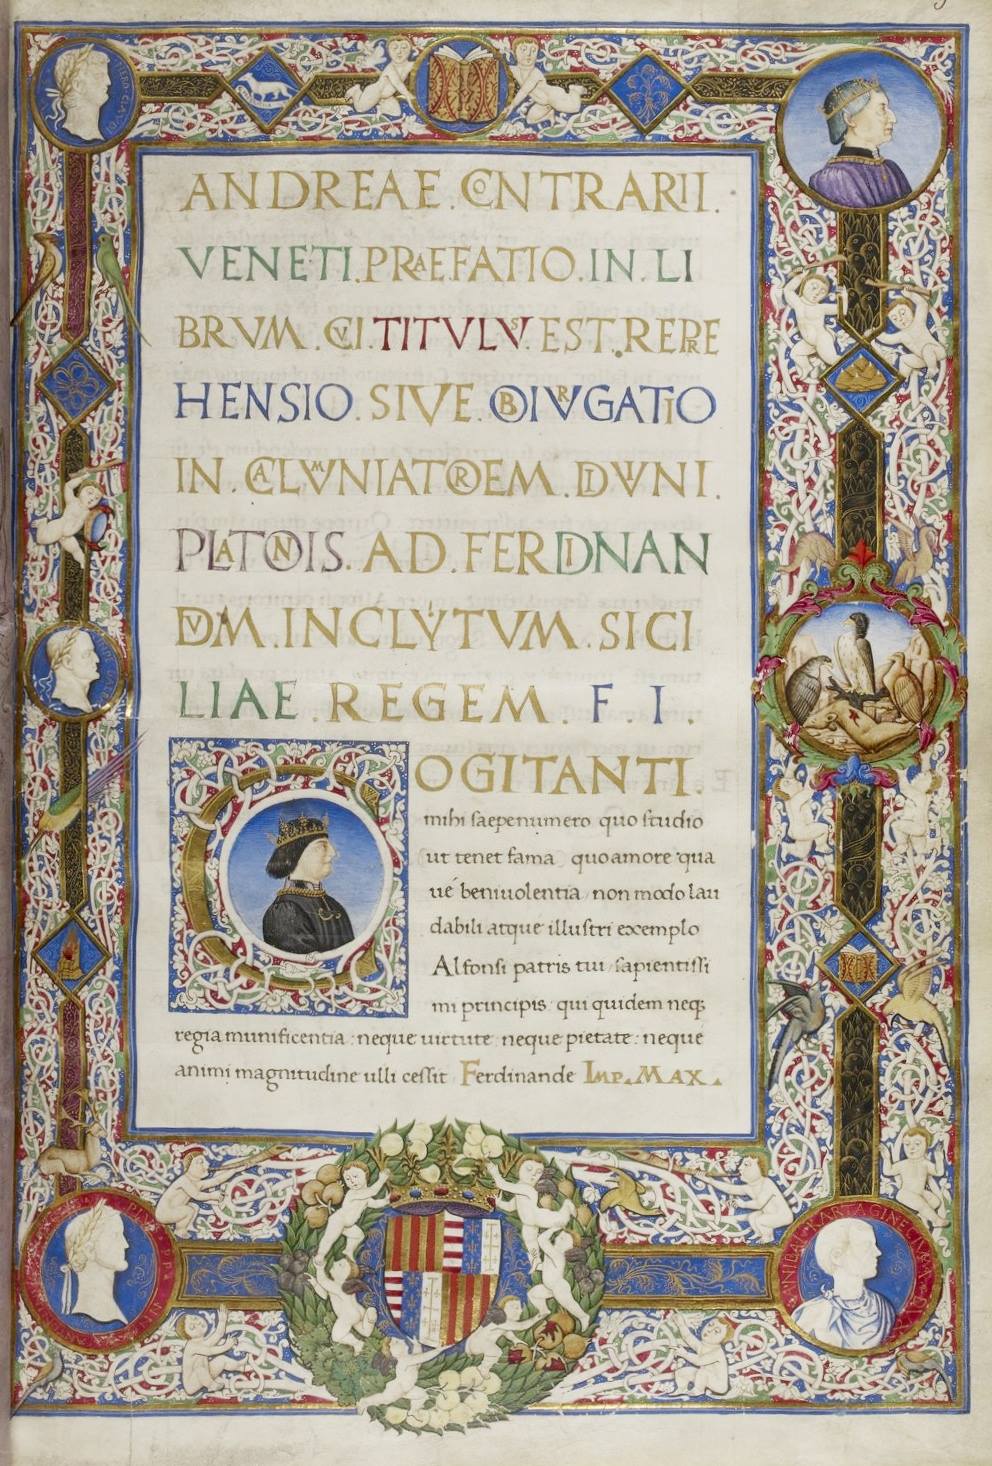 ANDREAE . CONTRARII .
VENETI . PRAEFATIO . IN . LI
BRVM . CVI . TITVLVS . EST . REPRE
HENSIO . SIVE . OBIVRGATIO
IN . CALVMNIATOREM . DIVINI .
PLATONIS . AD . FERDINAN
DVM . INCLYTVM . SICI
LIAE . REGEM . F . I .
COGITANTI .
mihi saepenumero quo studio
ut tenet fama quo amore qua
ue beniuolentia non modo lau
dabili atque illustri exemplo
Alfonsi patris tui sapientissi
mi principis qui quidem neq;
regia munificentia : neque uirtute neque pietate : neque
animi magnitudine ulli cessit Ferdinande IMP . MAX .